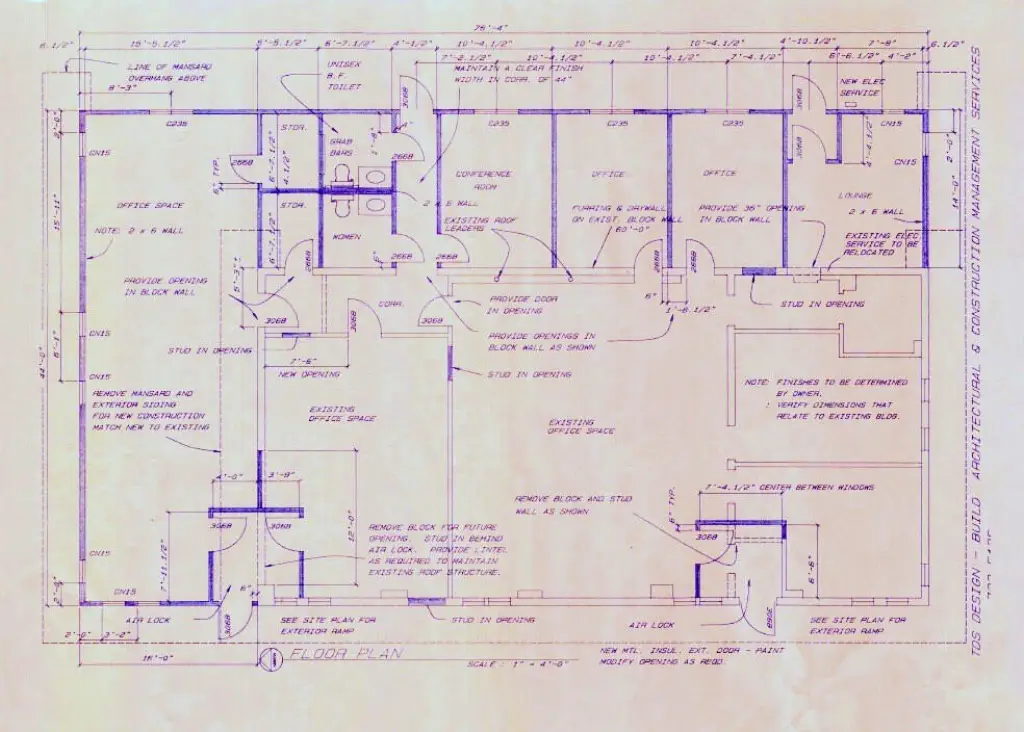 76'-4"
6.1/2"
15'-5.1/2"
5'-5.1/2"
6'-7.1/2"
4'-1/2"
10'-4.1/2"
10'-4.1/2"
10'-4.1/2"
4'-10.1/2"
7'-8"
6.1/2"
7'-2.1/2"
10'-4.1/2"
10'-4.1/2"
7'-4.1/2"
6'-6.1/2"
4'-0"
LINE OF MANSARD
OVERHANG ABOVE
8'-3"
UNISEX
B.F.
TOILET
MAINTAIN A CLEAR FINISH
WIDTH IN CORR. OF 44"
NEW ELEC
SERVICE
3068
3068
3068
2'-0"
C235
STOR.
C235
C235
C235
CN15
CN15
CN15
GRAB
BARS
1'-8"
4"
2668
2668
6" TYP.
6'-7.1/2"
4.1/2"
4'-4.1/2"
2'-0"
14'-0"
CONFERENCE
ROOM
OFFICE
OFFICE
LOUNGE
OFFICE SPACE
STOR.
2 x 6 WALL
FURRING & DRYWALL
ON EXIST. BLOCK WALL
60'-0"
PROVIDE 36" OPENING
IN BLOCK WALL
2 x 6 WALL
EXISTING ROOF
LEADERS
NOTE: 2 x 6 WALL
WOMEN
EXISTING ELEC.
SERVICE TO BE
RELOCATED
15'-11"
6'-7.1/2"
2668
6"
2668
2668
2668
2668
PROVIDE OPENING
IN BLOCK WALL
5'-3"
CORR.
PROVIDE DOOR
IN OPENING
6"
1'-6.1/2"
STUD IN OPENING
3068
3068
3068
PROVIDE OPENINGS IN
BLOCK WALL AS SHOWN
CN15
STUD IN OPENING
7'-6"
NEW OPENING
STUD IN OPENING
6'-1"
44'-0"
CN15
REMOVE MANSARD AND
EXTERIOR SIDING
FOR NEW CONSTRUCTION
MATCH NEW TO EXISTING
NOTE: FINISHES TO BE DETERMINED
BY OWNER.
: VERIFY DIMENSIONS THAT
RELATE TO EXISTING BLDG.
EXISTING
OFFICE SPACE
EXISTING
OFFICE SPACE
4'-0"
3'-9"
7'-4.1/2" CENTER BETWEEN WINDOWS
6" TYP.
REMOVE BLOCK AND STUD
WALL AS SHOWN
3068
3068
3068
12'-0"
REMOVE BLOCK FOR FUTURE
OPENING. STUD IN BEHIND
AIR LOCK. PROVIDE LINTEL
AS REQUIRED TO MAINTAIN
EXISTING ROOF STRUCTURE.
CN15
7'-11.1/2"
6'-6"
2'-0"
CN15
6"
AIR LOCK
3068
SEE SITE PLAN FOR
EXTERIOR RAMP
STUD IN OPENING
AIR LOCK
3068
SEE SITE PLAN FOR
EXTERIOR RAMP
2'-0"
3'-2"
16'-0"
FLOOR PLAN
SCALE : 1" = 4'-0"
NEW MTL. INSUL. EXT. DOOR - PAINT
MODIFY OPENING AS REQD.
TDS DESIGN - BUILD ARCHITECTURAL & CONSTRUCTION MANAGEMENT SERVICES